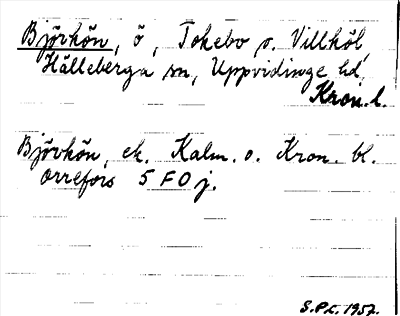 Björkön, ö, Tokebo o. Villköl,
Hälleberga sn, Uppvidinge hd,
Kron. l.
Björkön, ek. Kalm. o. Kron. bl.
Orrefors 5 F 0 j.
S.P.t. 1957.